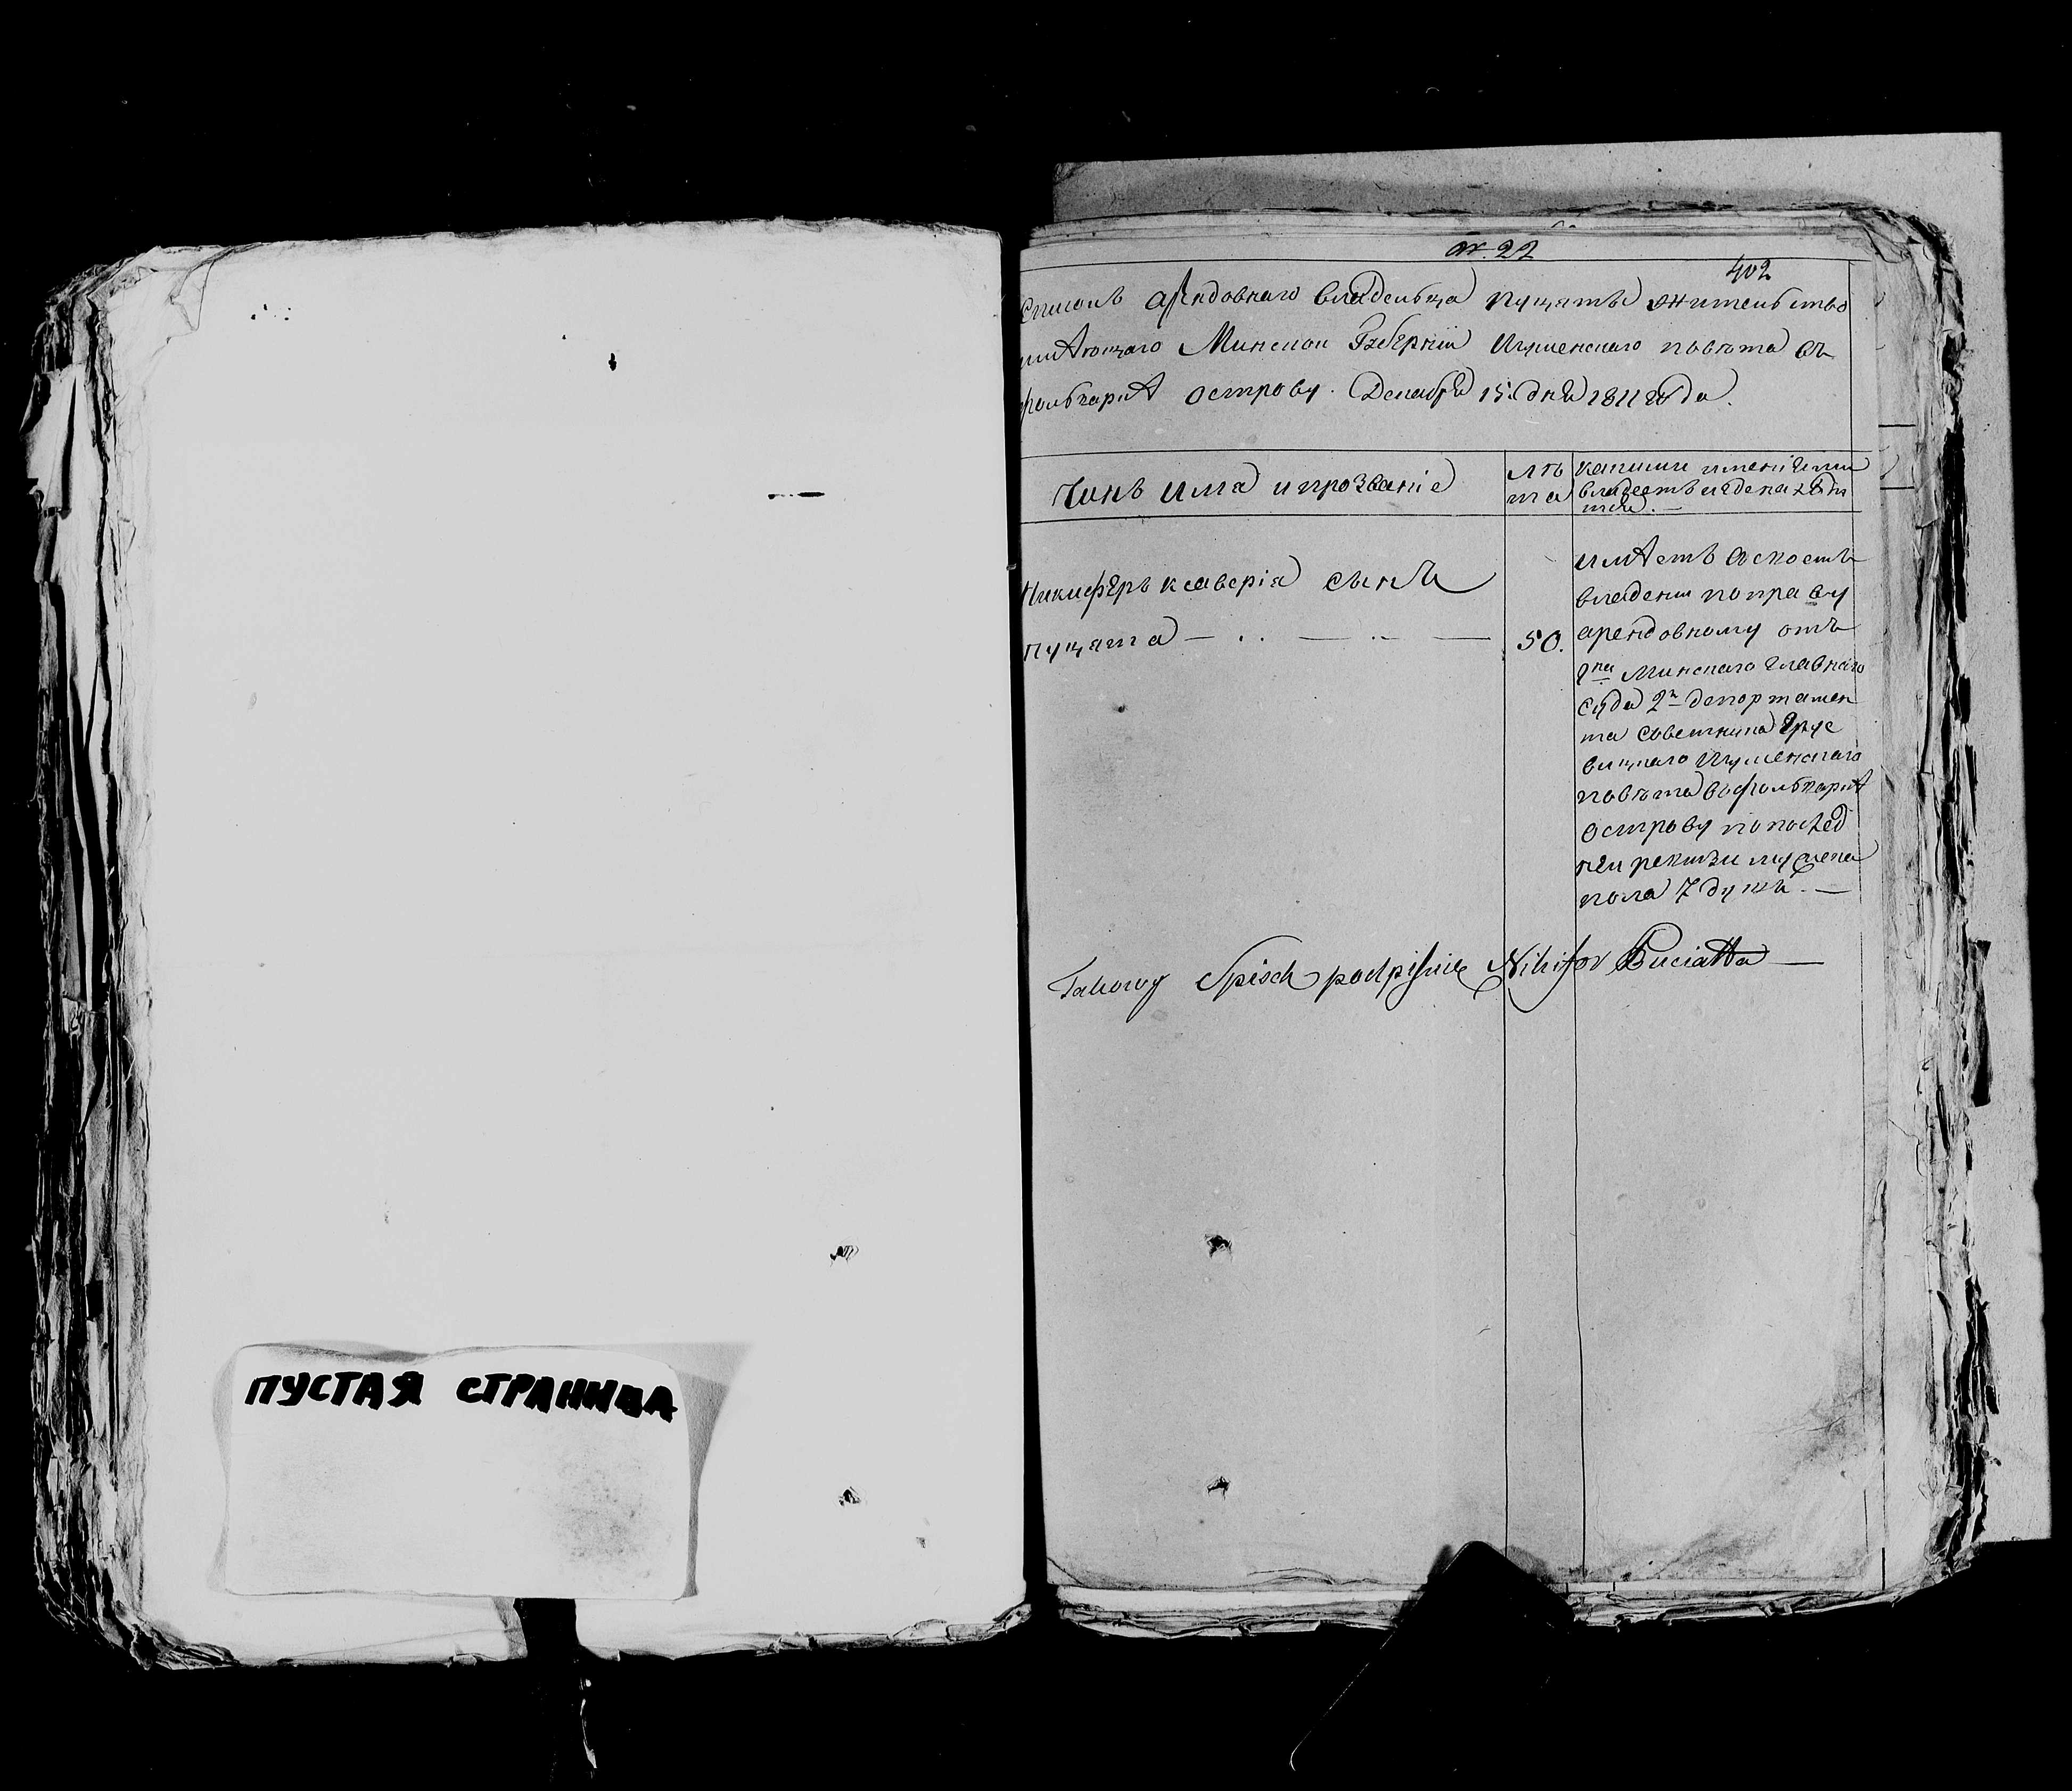 ПУСТАЯ СТРАНИЦА
№ 22
402
Списокъ арендовнаго владельца Пуцяты жительство
имѣющаго Минской Губерніи Игуменскаго повѣта въ
фольваркѣ Острову. Декабря 15. дня 1811 года.
Чинъ имя и прозваніе
лѣ
та
какими имениями
владеетъ и где находят
тся. —
Никифоръ Ксаверія сынъ
Пуцята — . . — .. —
50.
имѣетъ въ своемъ
владении по праву
арендовному отъ
Минскаго главнаго
суда 2го департамен
та советника
Игуменскаго
повѣта в фольваркѣ
Острову по послед
ней ревизии мужска
пола 7 душъ. —
Takowy Spisek podpisuie Nikifor Puciatta —